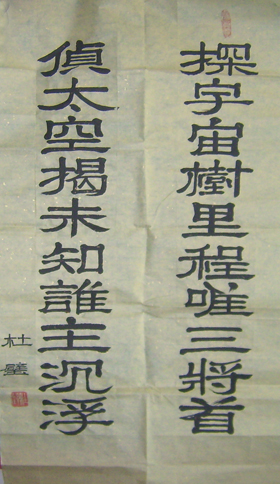 探宇宙樹里程唯三將首
偵太空揭未知誰主沉浮
杜璧